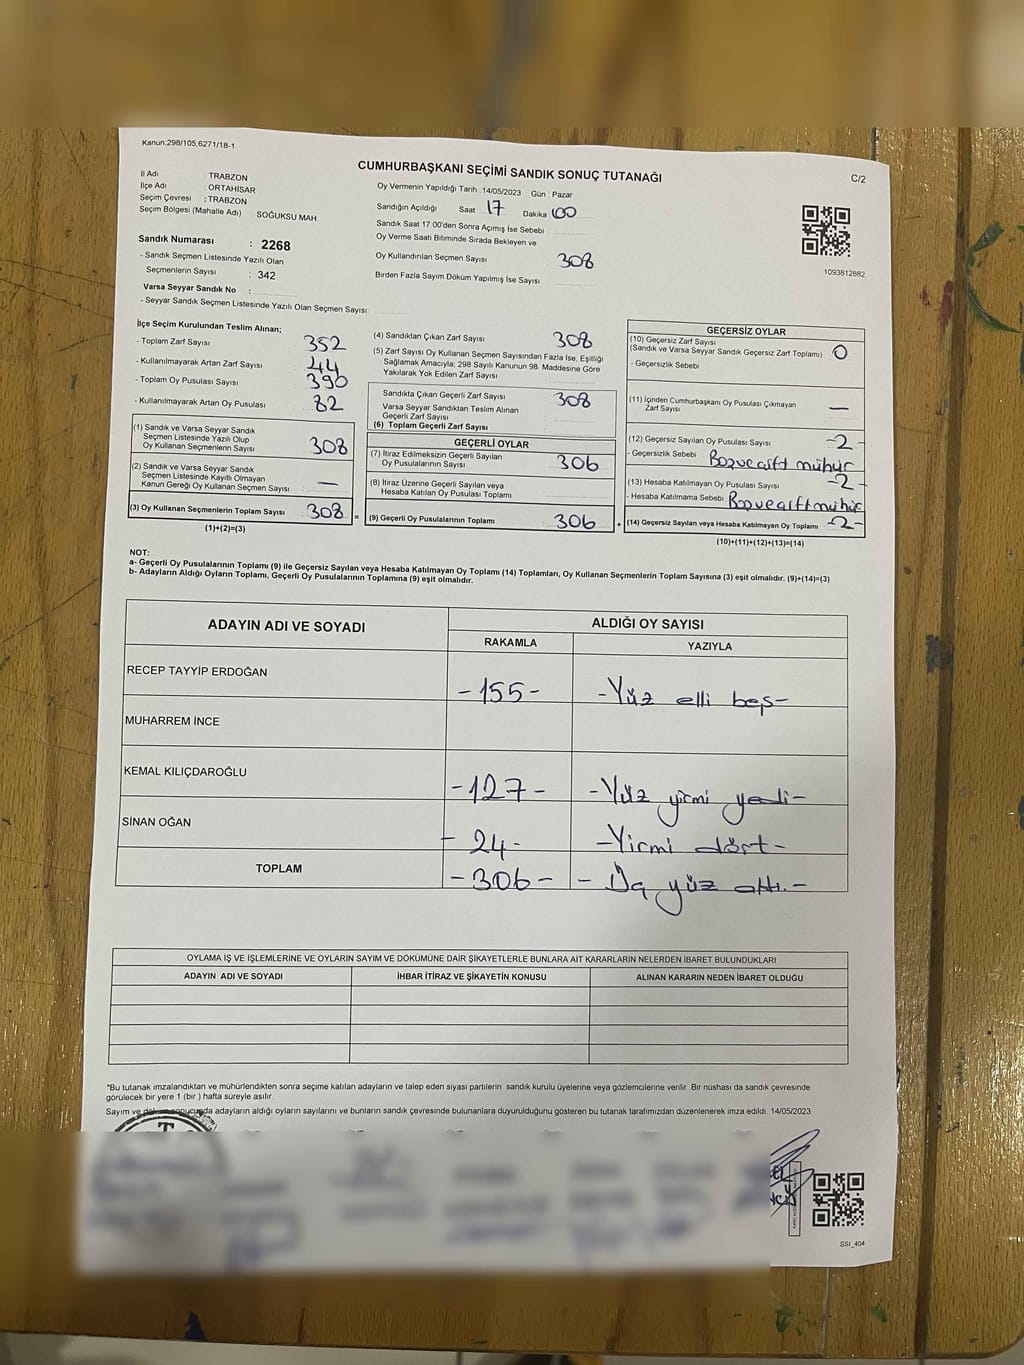 Kanun;298/105,6271/18-1
CUMHURBAŞKANI SEÇİMİ SANDIK SONUÇ TUTANAĞI
C/2
İl Adı : TRABZON
İlçe Adı : ORTAHİSAR
Seçim Çevresi : TRABZON
Seçim Bölgesi (Mahalle Adı) : SOĞUKSU MAH.
Sandık Numarası : 2268
- Sandık Seçmen Listesinde Yazılı Olan
Seçmenlerin Sayısı : 342
Varsa Seyyar Sandık No :
- Seyyar Sandık Seçmen Listesinde Yazılı Olan Seçmen Sayısı:
Oy Vermenin Yapıldığı Tarih : 14/05/2023 Gün : Pazar
Sandığın Açıldığı Saat 17 Dakika 00
Sandık Saat 17:00'den Sonra Açılmış İse Sebebi
Oy Verme Saati Bitiminde Sırada Bekleyen ve
Oy Kullandırılan Seçmen Sayısı 308
Birden Fazla Sayım Döküm Yapılmış İse Sayısı
1093812882
İlçe Seçim Kurulundan Teslim Alınan;
- Toplam Zarf Sayısı 352
- Kullanılmayarak Artan Zarf Sayısı 44
- Toplam Oy Pusulası Sayısı 390
- Kullanılmayarak Artan Oy Pusulası 82
(1) Sandık ve Varsa Seyyar Sandık
Seçmen Listesinde Yazılı Olup
Oy Kullanan Seçmenlerin Sayısı 308
(2) Sandık ve Varsa Seyyar Sandık
Seçmen Listesinde Kayıtlı Olmayan
Kanun Gereği Oy Kullanan Seçmen Sayısı —
(3) Oy Kullanan Seçmenlerin Toplam Sayısı 308
(1)+(2)=(3)
(4) Sandıktan Çıkan Zarf Sayısı 308
(5) Zarf Sayısı Oy Kullanan Seçmen Sayısından Fazla İse, Eşitliği
Sağlamak Amacıyla; 298 Sayılı Kanunun 98. Maddesine Göre
Yakılarak Yok Edilen Zarf Sayısı
Sandıkta Çıkan Geçerli Zarf Sayısı 308
Varsa Seyyar Sandıktan Teslim Alınan
Geçerli Zarf Sayısı
(6) Toplam Geçerli Zarf Sayısı
GEÇERLİ OYLAR
(7) İtiraz Edilmeksizin Geçerli Sayılan
Oy Pusulalarının Sayısı 306
(8) İtiraz Üzerine Geçerli Sayılan veya
Hesaba Katılan Oy Pusulası Toplamı
= (9) Geçerli Oy Pusulalarının Toplamı 306 +
GEÇERSİZ OYLAR
(10) Geçersiz Zarf Sayısı
(Sandık ve Varsa Seyyar Sandık Geçersiz Zarf Toplamı) 0
- Geçersizlik Sebebi
(11) İçinden Cumhurbaşkanı Oy Pusulası Çıkmayan
Zarf Sayısı —
(12) Geçersiz Sayılan Oy Pusulası Sayısı -2-
- Geçersizlik Sebebi Boş ve çift mühür
(13) Hesaba Katılmayan Oy Pusulası Sayısı -2-
- Hesaba Katılmama Sebebi Boş ve çift mühür
(14) Geçersiz Sayılan veya Hesaba Katılmayan Oy Toplamı -2-
(10)+(11)+(12)+(13)=(14)
NOT:
a- Geçerli Oy Pusulalarının Toplamı (9) ile Geçersiz Sayılan veya Hesaba Katılmayan Oy Toplamı (14) Toplamları, Oy Kullanan Seçmenlerin Toplam Sayısına (3) eşit olmalıdır. (9)+(14)=(3)
b- Adayların Aldığı Oyların Toplamı, Geçerli Oy Pusulalarının Toplamına (9) eşit olmalıdır.
ADAYIN ADI VE SOYADI
ALDIĞI OY SAYISI
RAKAMLA YAZIYLA
RECEP TAYYİP ERDOĞAN -155- -Yüz elli beş-
MUHARREM İNCE
KEMAL KILIÇDAROĞLU -127- -Yüz yirmi yedi-
SİNAN OĞAN - 24- -Yirmi dört-
TOPLAM -306- - Üç yüz altı.-
OYLAMA İŞ VE İŞLEMLERİNE VE OYLARIN SAYIM VE DÖKÜMÜNE DAİR ŞİKAYETLERLE BUNLARA AİT KARARLARIN NELERDEN İBARET BULUNDUKLARI
ADAYIN ADI VE SOYADI İHBAR İTİRAZ VE ŞİKAYETİN KONUSU ALINAN KARARIN NEDEN İBARET OLDUĞU
*Bu tutanak imzalandıktan ve mühürlendikten sonra seçime katılan adayların ve talep eden siyasi partilerin sandık kurulu üyelerine veya gözlemcilerine verilir. Bir nüshası da sandık çevresinde
görülecek bir yere 1 (bir ) hafta süreyle asılır.
Sayım ve döküm sonucunda adayların aldığı oyların sayılarını ve bunların sandık çevresinde bulunanlara duyurulduğunu gösteren bu tutanak tarafımızdan düzenlenerek imza edildi. 14/05/2023
T
SSI_404